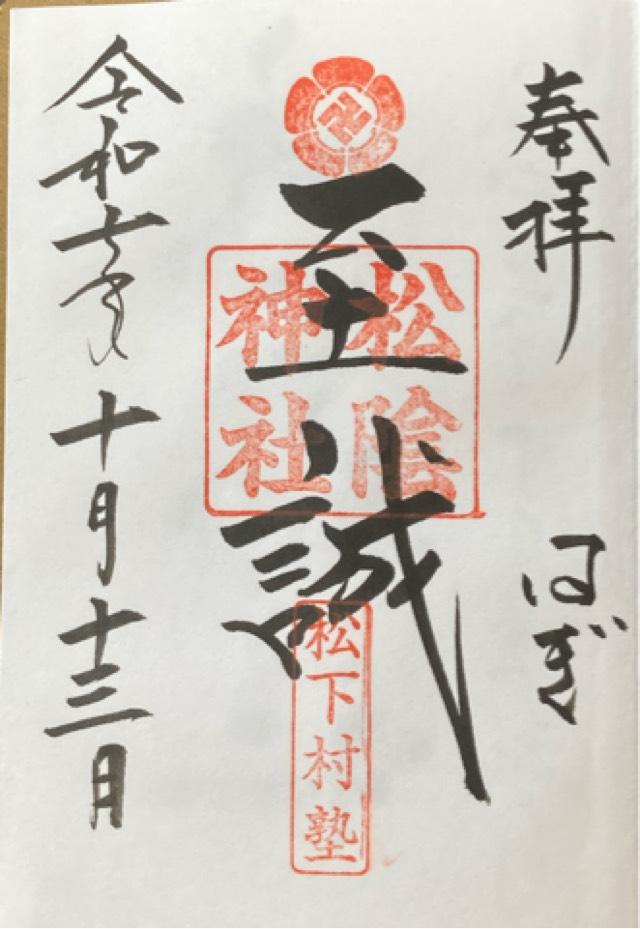 奉拝
はぎ
至誠
松陰
神社
松下村塾
令和七年十月十三日